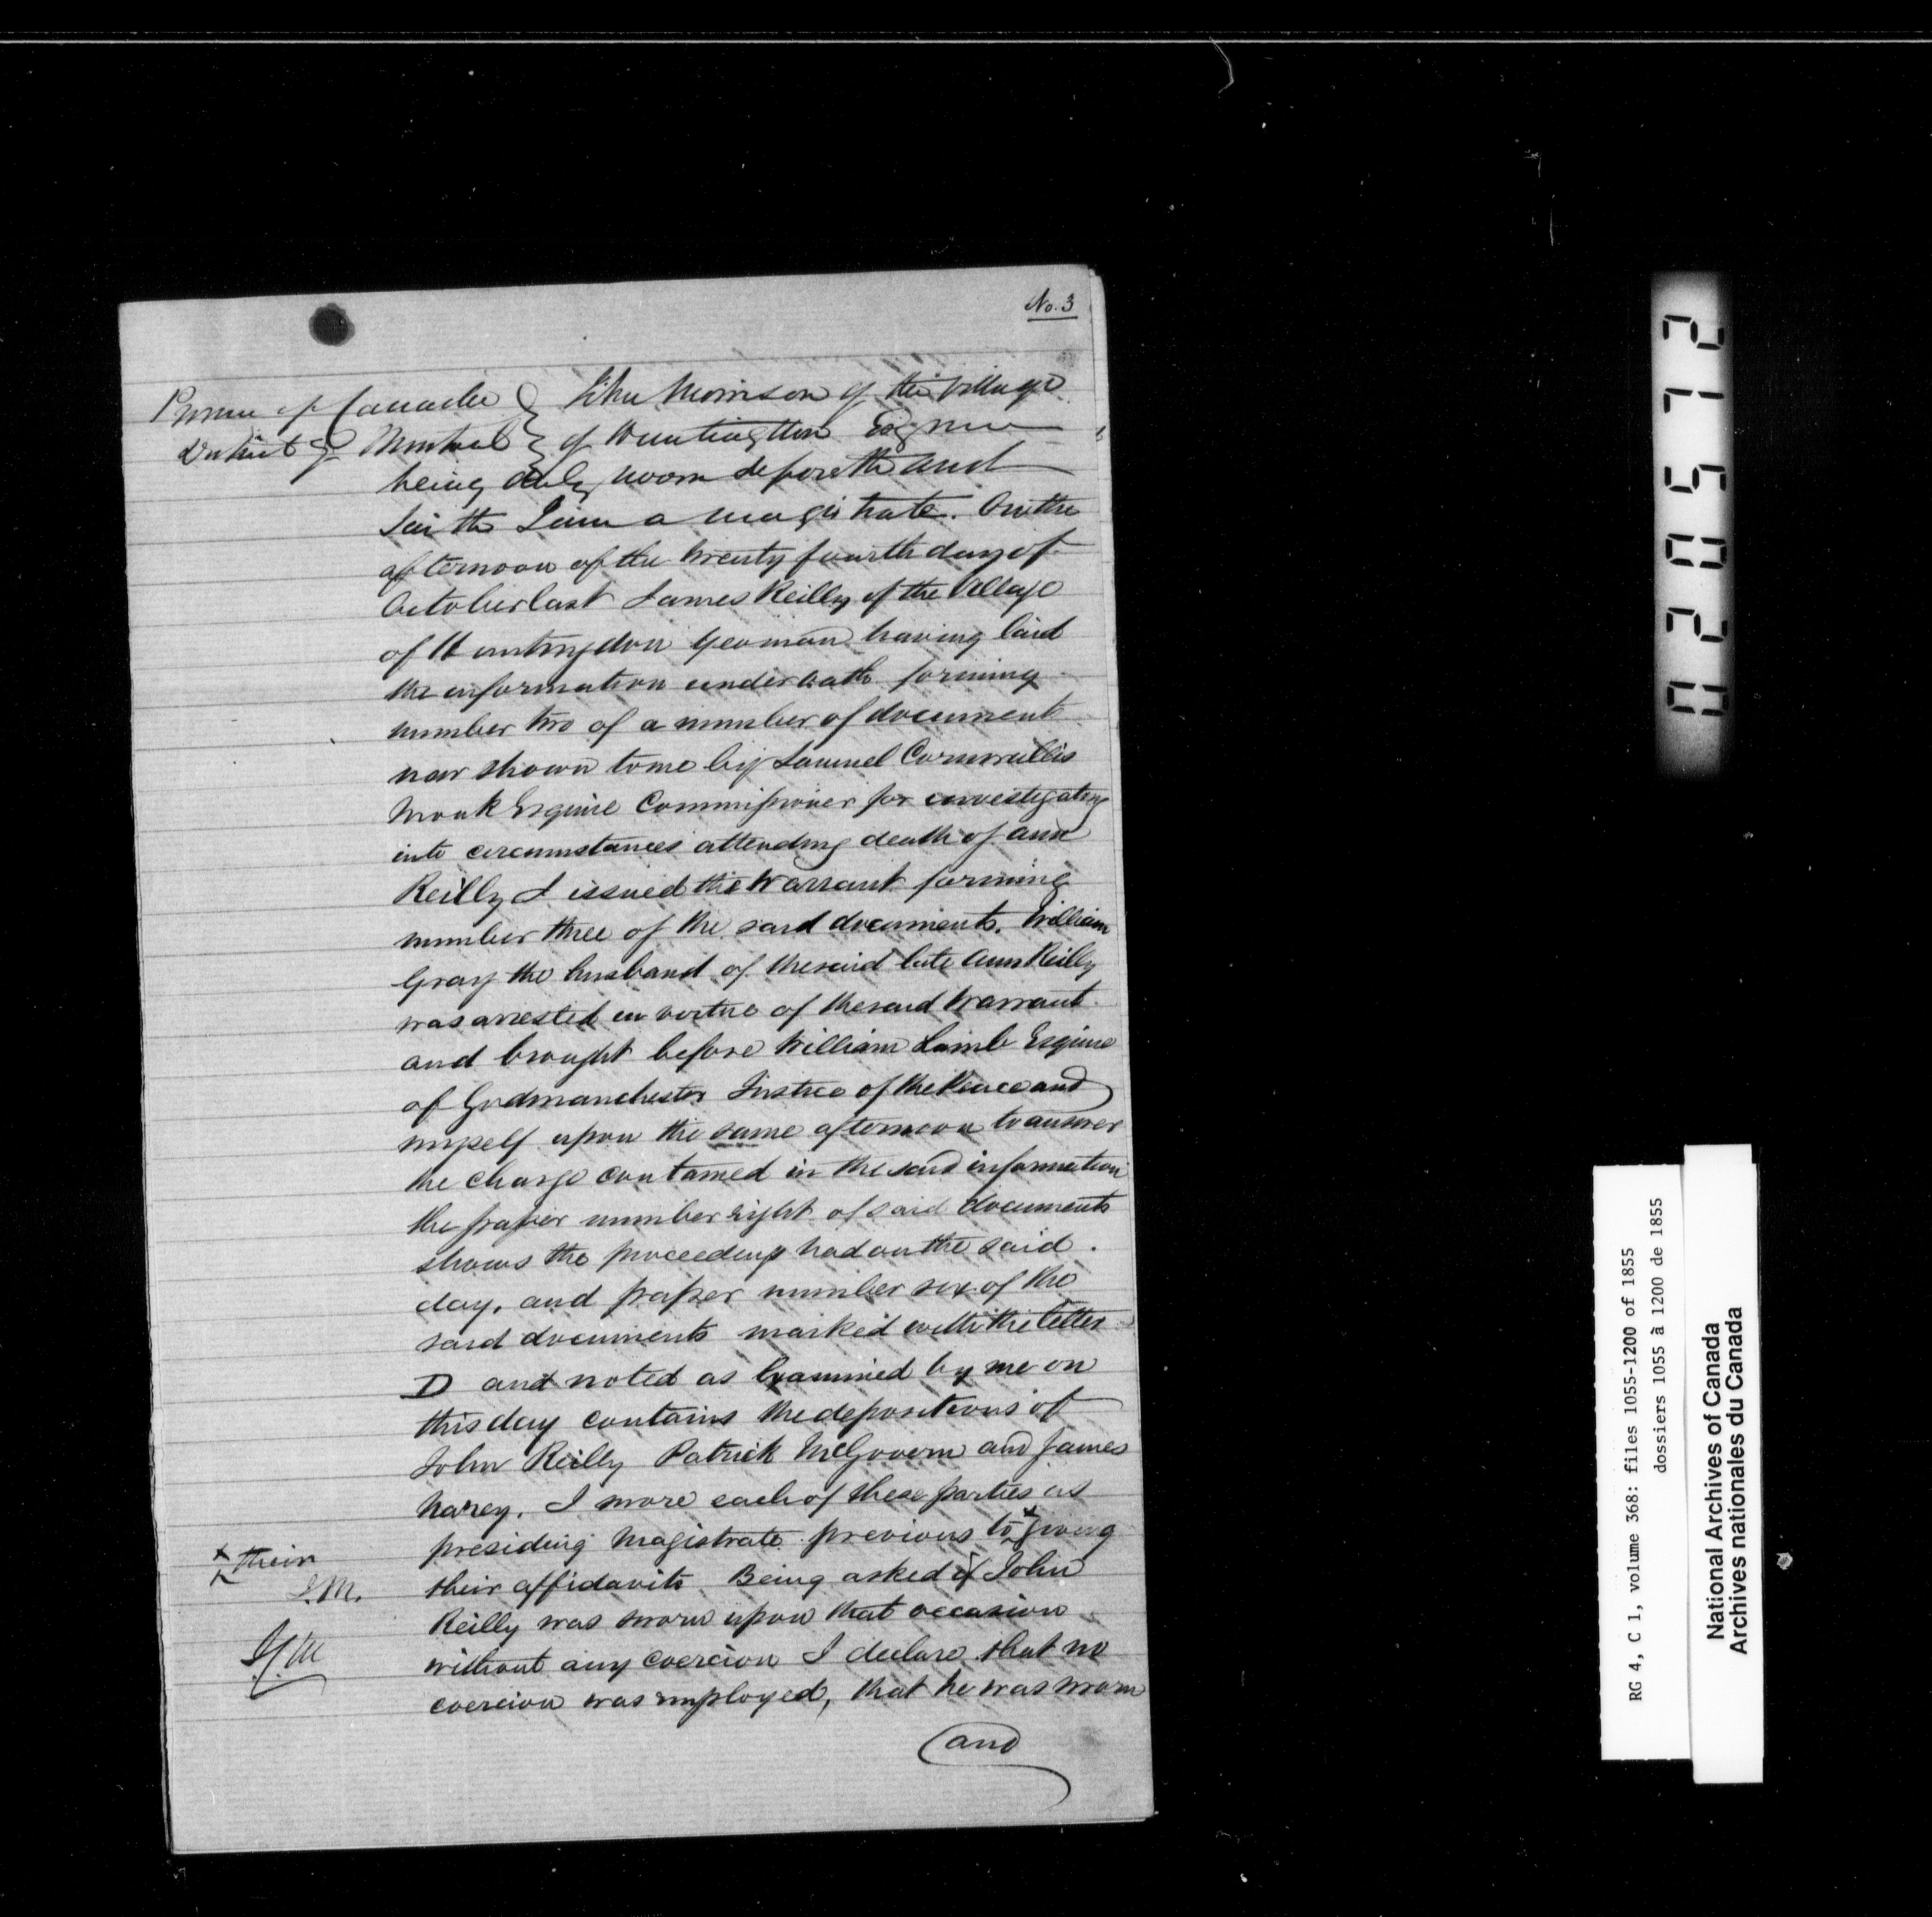 No. 3
Province of Canada } John Morrison of the Village
District of Montreal } of Huntingdon Esquire
being duly sworn deposeth and
saith I am a magistrate. On the
afternoon of the twenty fourth day of
October last James Reilly of the Village
of Huntingdon yeoman having laid
the information under oath forming
number two of a number of documents
now shown to me by Samuel Cornwallis
Monk Esquire Commissioner for investigating
into circumstances attending death of Ann
Reilly I issued the Warrant forming
number three of the said documents. William
Gray the husband of the said late Ann Reilly
was arrested in virtue of the said Warrant
and brought before William Lamb Esquire
of Godmanchester Justice of the Peace and
myself upon the same afternoon to answer
the charge contained in the said information
the paper number eight of said documents
shows the proceedings had on the said
day, and paper number six of the
said documents marked with the letter
D and noted as Examined by me on
this day contains the depositions of
John Reilly Patrick McGovern and James
I swore each of these parties as
presiding Magistrate previous to x giving
x their
J.M.
their affidavits Being asked if John
Reilly was sworn upon that occasion
J.M
without any coercion I declare that no
coercion was employed, that he was sworn
and
0205712
RG 4, C 1, volume 368: files 1055-1200 of 1855
dossiers 1055 à 1200 de 1855
National Archives of Canada
Archives nationales du Canada